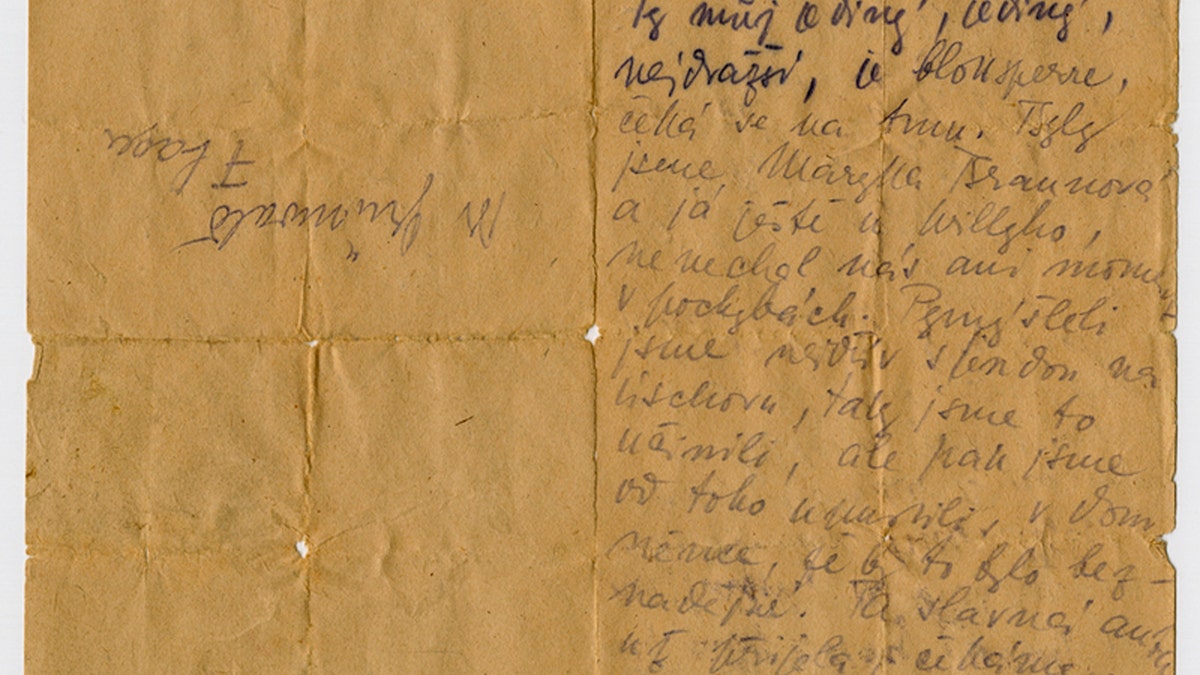 Ty můj jediný, jediný,
nejdražší, je blocksperre,
čeká se na tmu. Byly
jsme Maryla Braunová
a já ještě u Willyho,
nenechal nás ani moment
v pochybách. Pomýšleli
jsme nejdřív s jendou na
lischovu, taky jsme to
učinili, ale pak jsme
od toho upustili, v dom-
něnce, že by to bylo bez-
nadějné. Ta slavná auta
už přijela, čekáme
Dr Grünwald